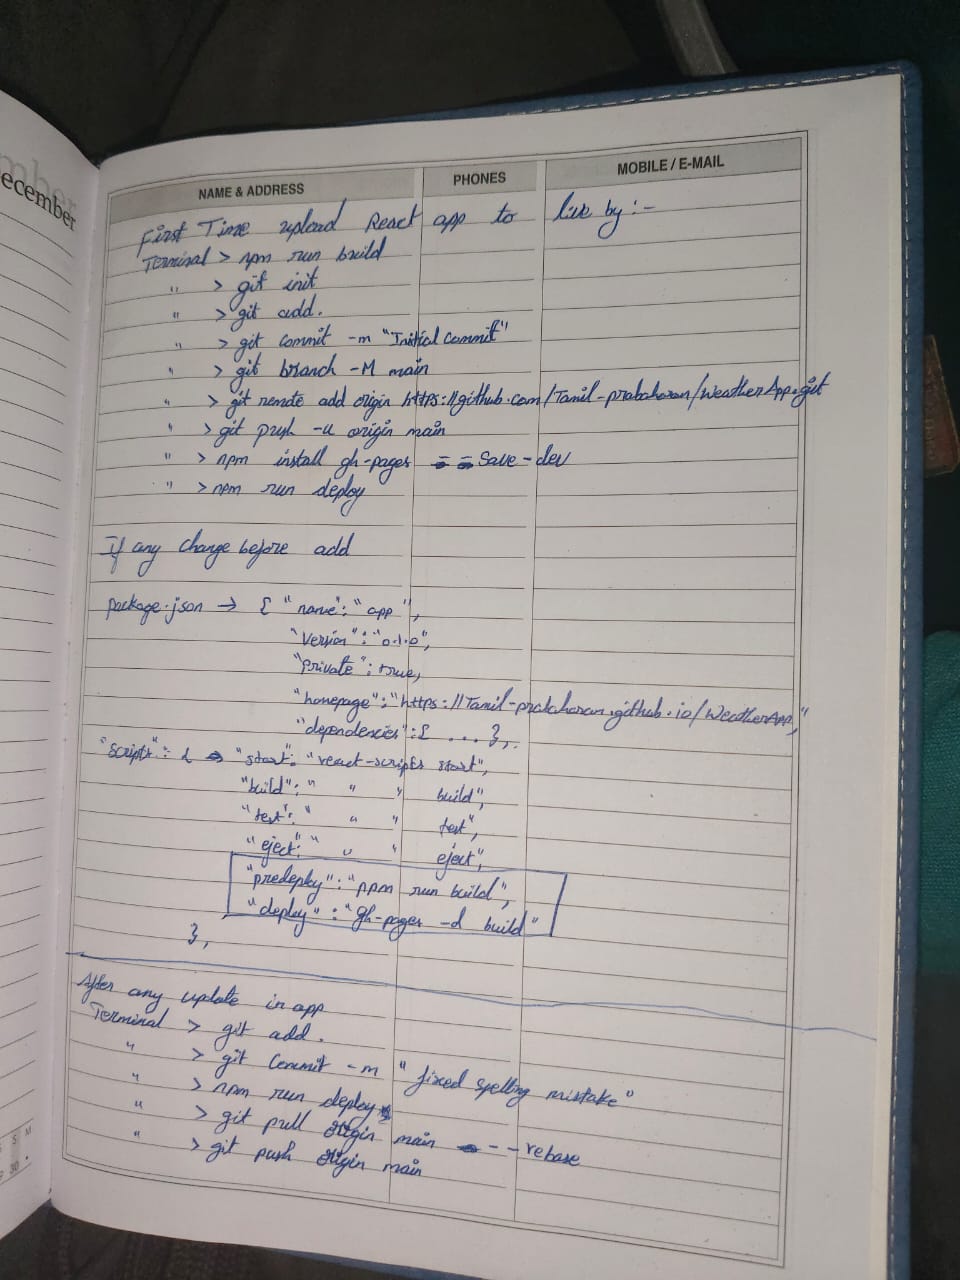 ecember
NAME & ADDRESS PHONES MOBILE / E-MAIL
First Time upload React app to live by :-
Terminal > npm run build
" > git init
" > git add .
" > git commit -m "Initial commit"
" > git branch -M main
" > git remote add origin https://github.com/Tamil-prabaharan/WeatherApp.git
" > git push -u origin main
" > npm install gh-pages --save-dev
" > npm run deploy
If any change before add
package.json → { "name": "app",
"version": "0.1.0",
"private": true,
"homepage": "https://Tamil-prabaharan.github.io/WeatherApp",
"dependencies": { ... },
"scripts": { → "start": "react-scripts start",
"build": " " " build",
"test": " " " test",
"eject": " " " eject",
"predeploy": "npm run build",
"deploy" : "gh-pages -d build"
},
After any update in app
Terminal > git add .
" > git commit -m "fixed spelling mistake"
" > npm run deploy
" > git pull origin main --rebase
" > git push origin main
S M
30